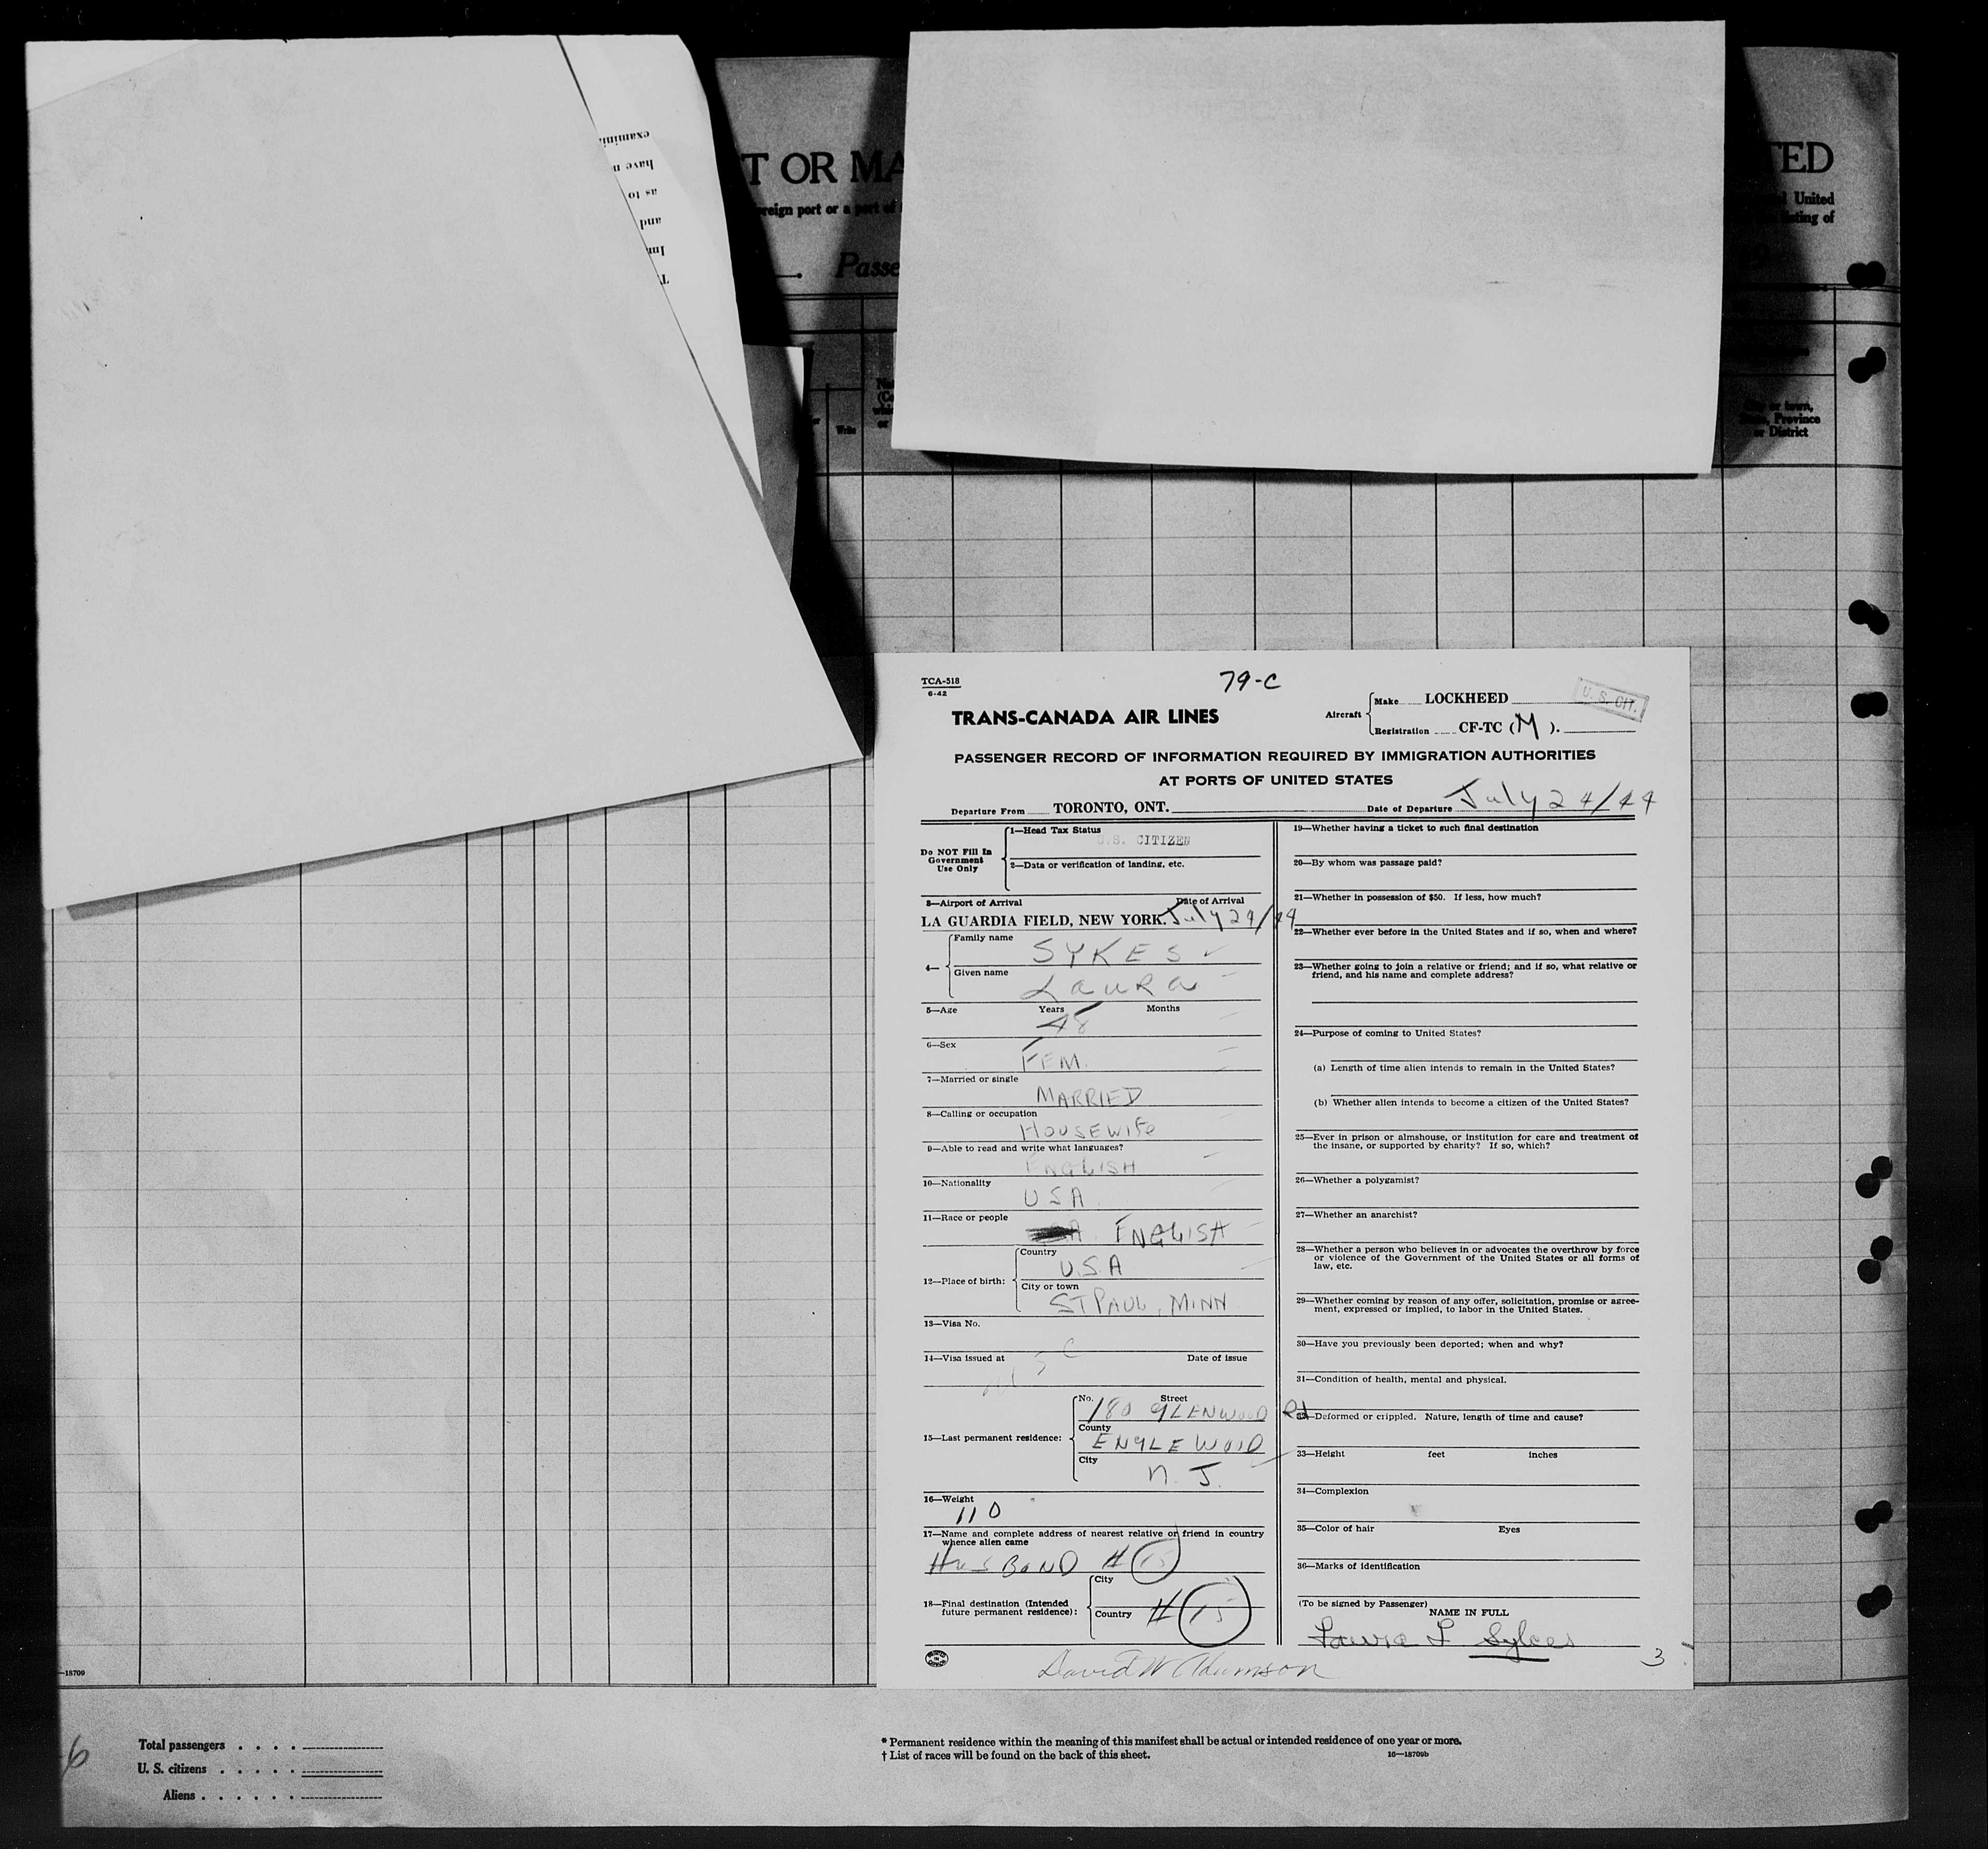 examini
have n
as to
and
Im
T
T OR MA
TED
oreign port or a port of
United
sting of
Passe
Write
or town,
Province
or District
TCA-518
6-42
79-C
TRANS-CANADA AIR LINES
Aircraft
Make LOCKHEED
Registration CF-TC (M).
U. S. CIT.
PASSENGER RECORD OF INFORMATION REQUIRED BY IMMIGRATION AUTHORITIES
AT PORTS OF UNITED STATES
Departure From TORONTO, ONT. Date of Departure July 24/44
Do NOT Fill In
Government
Use Only
1—Head Tax Status
U.S. CITIZEN
2—Data or verification of landing, etc.
3—Airport of Arrival Date of Arrival
LA GUARDIA FIELD, NEW YORK. July 24/44
4—
Family name SYKES
Given name Laura
5—Age Years Months
48
6—Sex
FEM.
7—Married or single
MARRIED
8—Calling or occupation
HOUSEWIFE
9—Able to read and write what languages?
ENGLISH
10—Nationality
USA
11—Race or people
ENGLISH
12—Place of birth:
Country
U.S.A
City or town
ST PAUL, MINN
13—Visa No.
14—Visa issued at Date of issue
15—Last permanent residence:
No. Street
180 GLENWOOD Rd
County
ENGLEWOOD
City
N. J.
16—Weight
110
17—Name and complete address of nearest relative or friend in country
whence alien came
HUSBAND # 15
18—Final destination (Intended
future permanent residence):
City
Country # 15
19—Whether having a ticket to such final destination
20—By whom was passage paid?
21—Whether in possession of $50. If less, how much?
22—Whether ever before in the United States and if so, when and where?
23—Whether going to join a relative or friend; and if so, what relative or
friend, and his name and complete address?
24—Purpose of coming to United States?
(a) Length of time alien intends to remain in the United States?
(b) Whether alien intends to become a citizen of the United States?
25—Ever in prison or almshouse, or institution for care and treatment of
the insane, or supported by charity? If so, which?
26—Whether a polygamist?
27—Whether an anarchist?
28—Whether a person who believes in or advocates the overthrow by force
or violence of the Government of the United States or all forms of
law, etc.
29—Whether coming by reason of any offer, solicitation, promise or agree-
ment, expressed or implied, to labor in the United States.
30—Have you previously been deported; when and why?
31—Condition of health, mental and physical.
32—Deformed or crippled. Nature, length of time and cause?
33—Height feet inches
34—Complexion
35—Color of hair Eyes
36—Marks of identification
(To be signed by Passenger)
NAME IN FULL
Laura L Sykes
David W Adamson
3
—18709
6
Total passengers
U. S. citizens
Aliens
* Permanent residence within the meaning of this manifest shall be actual or intended residence of one year or more.
† List of races will be found on the back of this sheet.
16—18709b